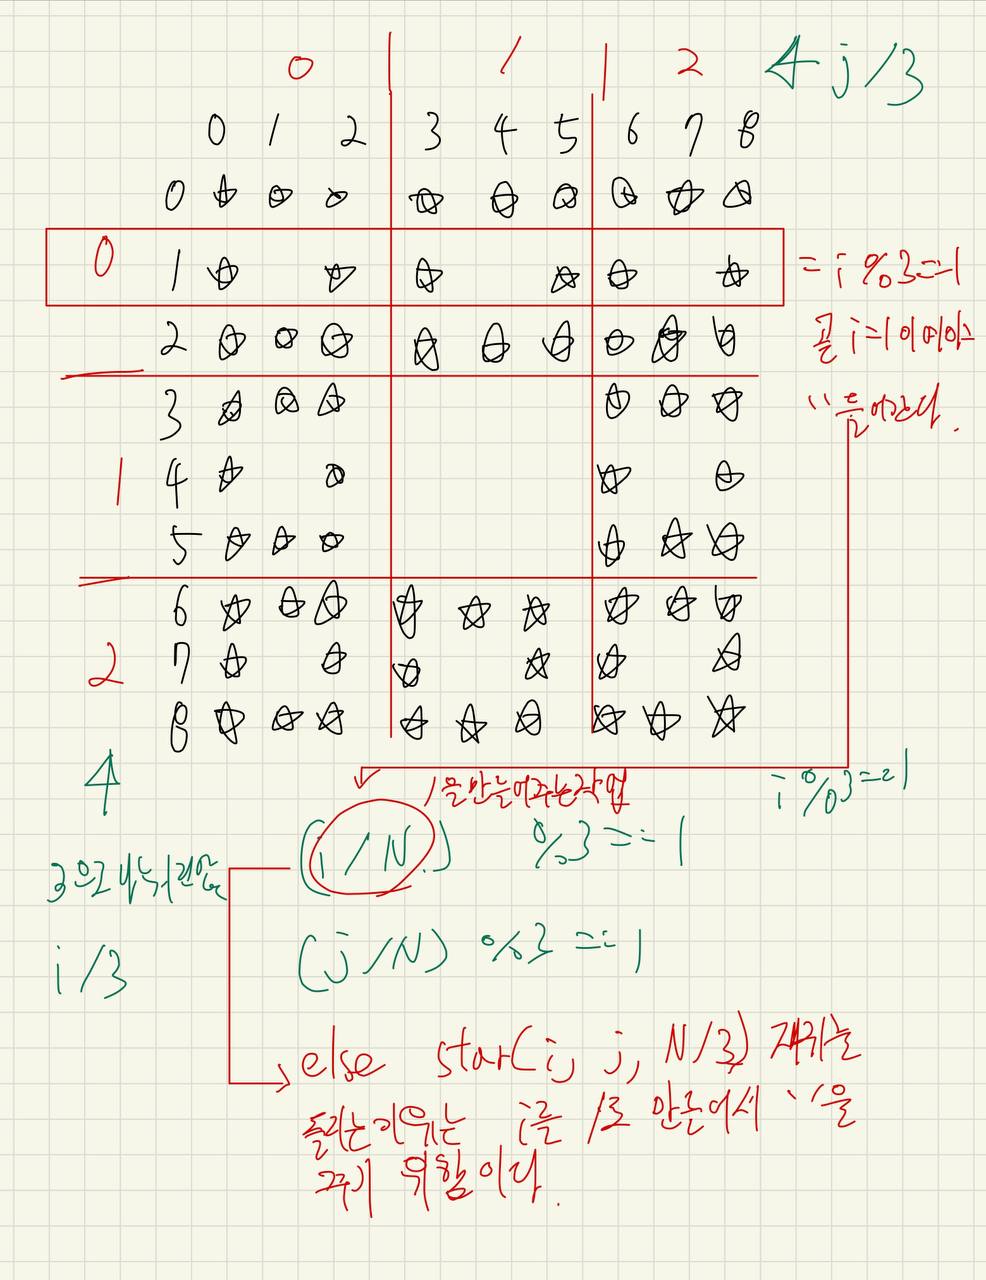 0 1 2 j/3
0 1 2 3 4 5 6 7 8
0
0 1 = i%3==1
2 꼴 i=1이여야
3 ' ' 들어간다.
1 4
5
6
2 7
8
1을 만들어주는 작업 i%3==1
(i/N) %3==1
3으로 나눠
(j/N) %3==1
i/3
else star(i, j, N/3) 재귀를
돌리는 이유는 i를 1로 만들어서 ' '을
주기 위함이다.